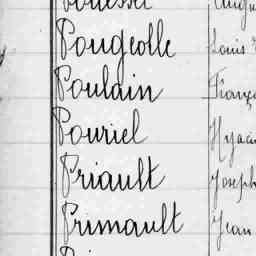 Pougeolle Louis
Poulain Franç
Pouriel Hyac
Priault Joseph
Primault Jean